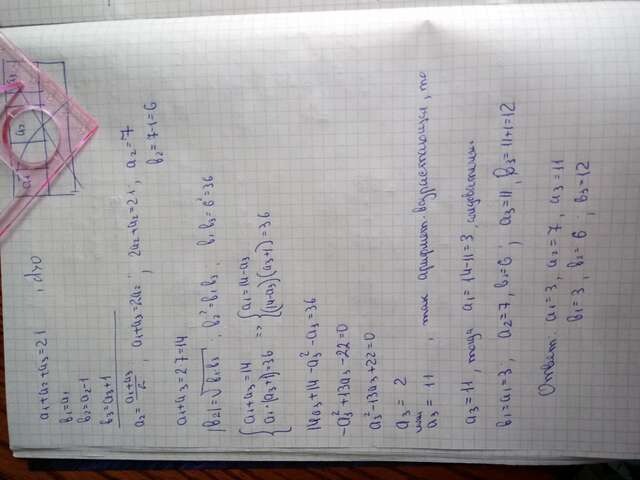 a₁+a₂+a₃=21 , d>0
b₁=a₁
b₂=a₂-1
b₃=a₃+1
a₂=(a₁+a₃)/2 , a₁+a₃=2a₂ ; 2a₂+a₂=21 , a₂=7
b₂=7-1=6
a₁+a₃=2·7=14
|b₂|=√(b₁b₃) , b₂²=b₁b₃ , b₁b₃=6²=36
{a₁+a₃=14 => {a₁=14-a₃
{a₁·(a₃+1)=36 {(14-a₃)(a₃+1)=36
14a₃+14-a₃²-a₃=36
-a₃²+13a₃-22=0
a₃²-13a₃+22=0
a₃= 2
или
a₃= 11 , так арифмет. возрастающая, то
a₃=11, тогда a₁=14-11=3, следовательно
b₁=a₁=3, a₂=7, b₂=6 ; a₃=11, b₃=11+1=12
Ответ. a₁=3, a₂=7, a₃=11
b₁=3, b₂=6 ; b₃=12
a₁
a₂
a₃-1